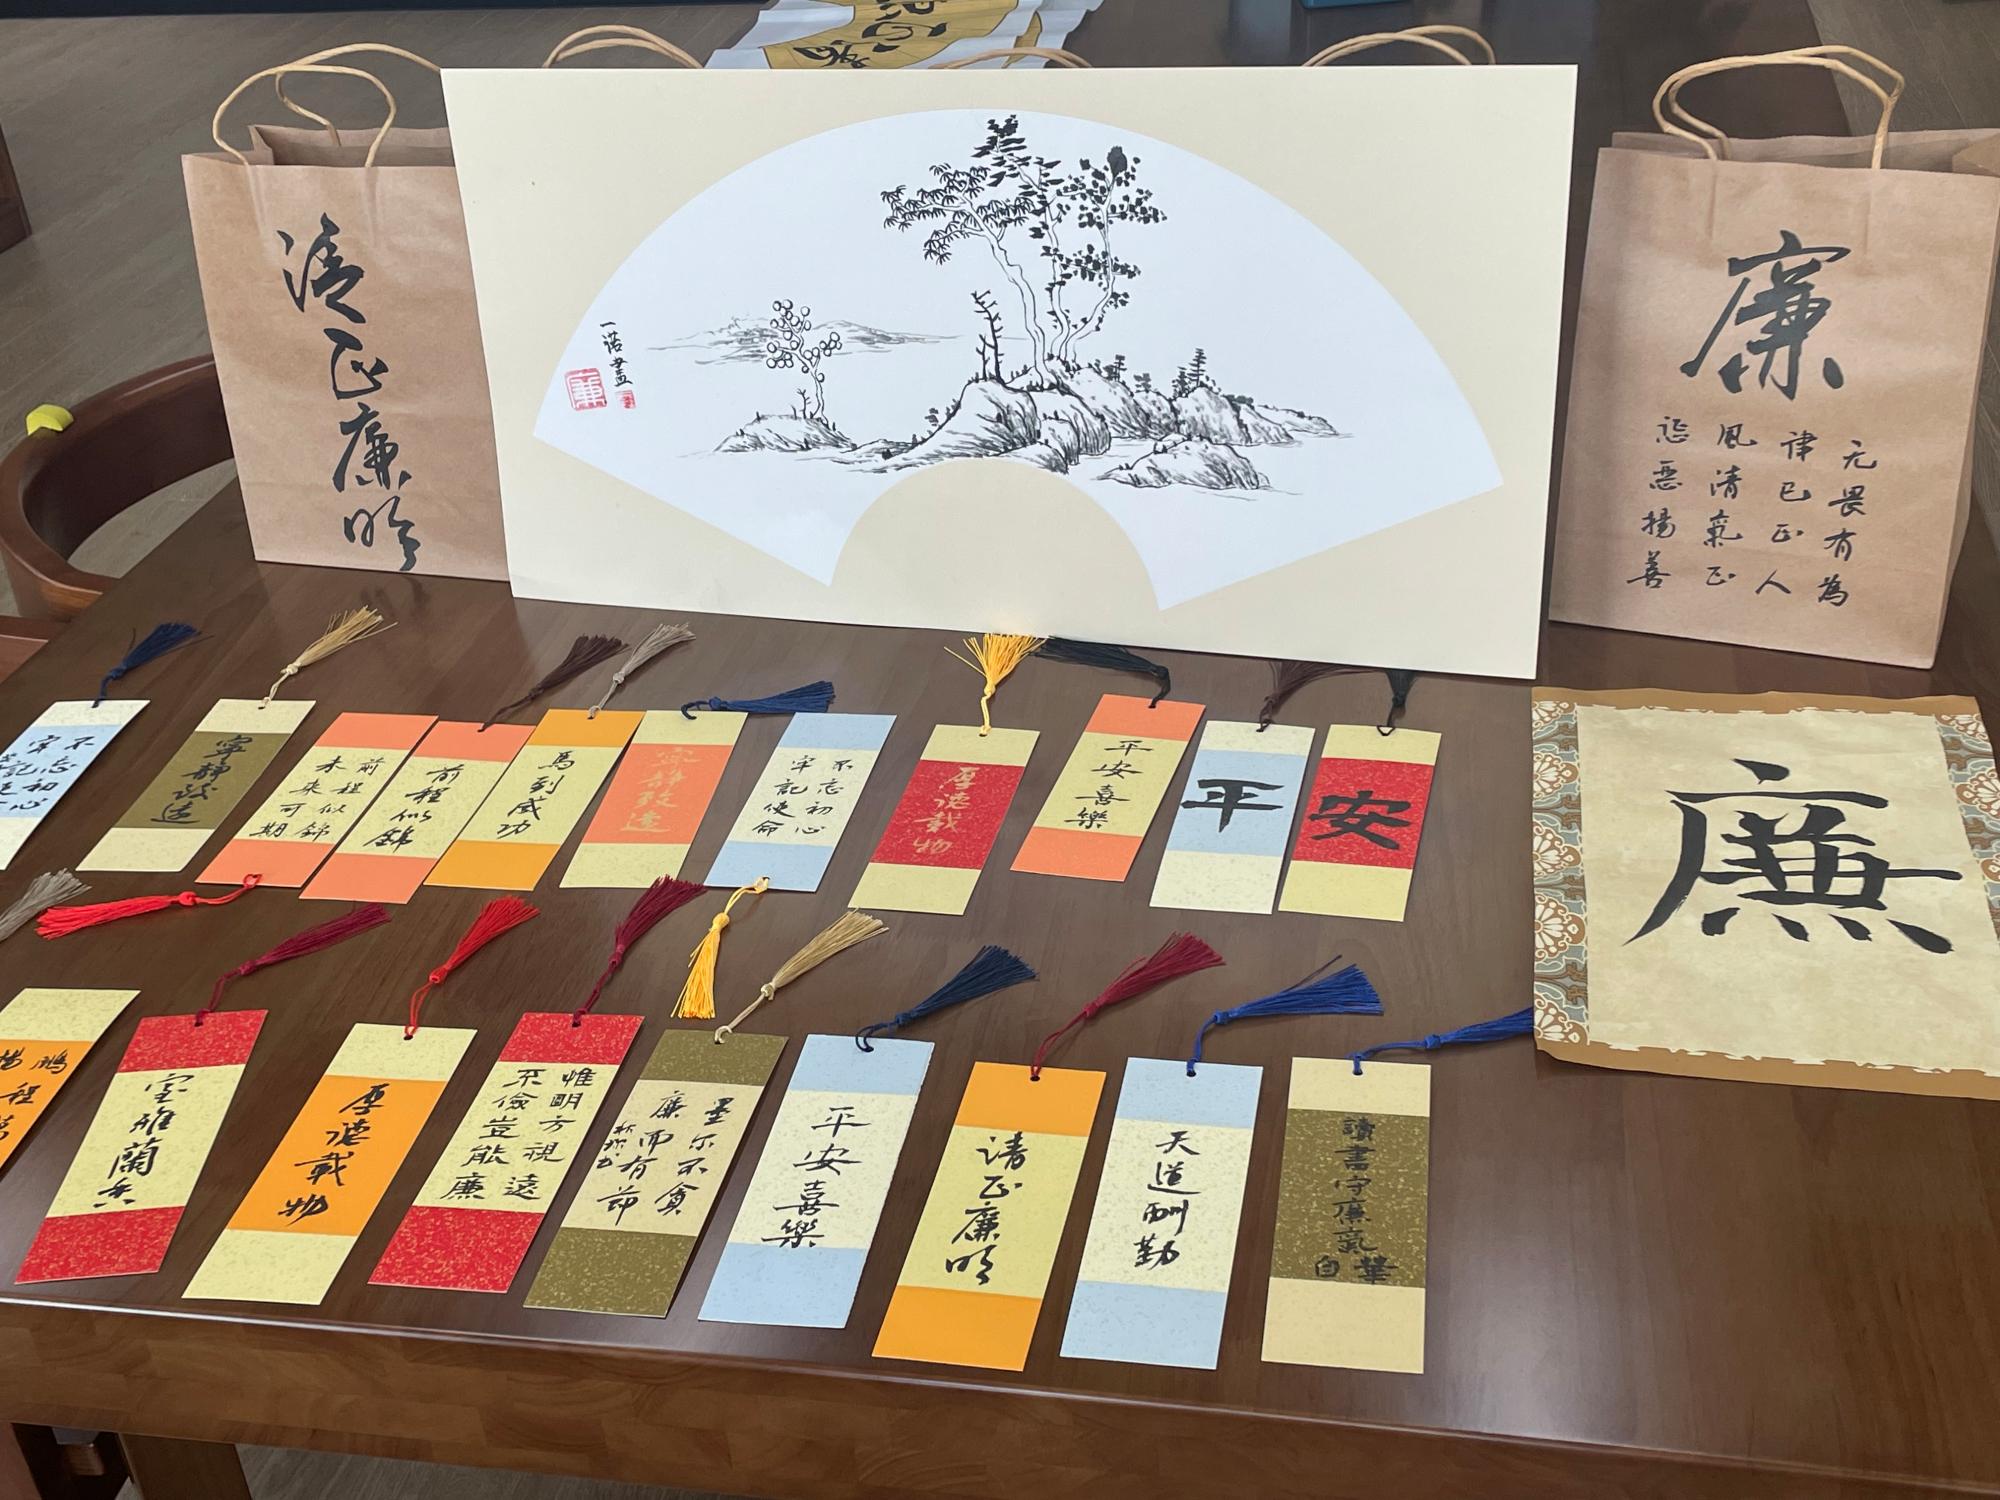 清正廉明
一諾畫
廉
廉
元畏有為
律已正人
風清氣正
惩惡揚善
不忘初心
寧靜致遠
前程似錦
未来可期
前程似錦
馬到成功
寧靜致遠
不忘初心
牢記使命
厚德載物
平安喜樂
平
安
廉
鵬程
室雅蘭香
厚德載物
惟明方視遠
不儉豈能廉
墨尔不貪
廉而有節
平安喜樂
清正廉明
天道酬勤
讀書守廉氣
自華